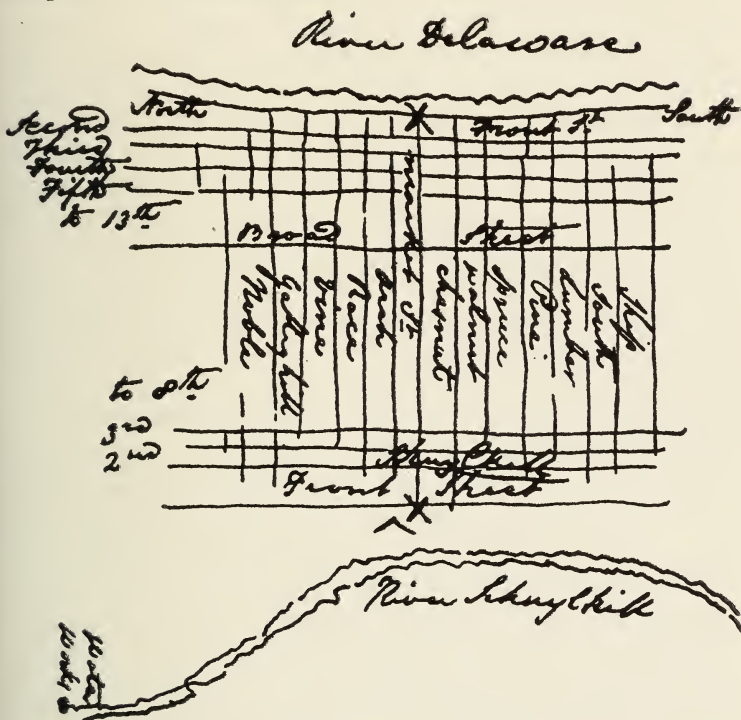 River Delaware
North
South
Front St
Second
Third
Fourth
Fifth
to 13th
Broad
Street
Noble
Vine
Race
Arch
Market St
chesnut
walnut
Spruce
Pine
Lumber
South
Ship
to 8th
3rd
2nd
Schuylkill
Front Street
River Schuylkill
Water
Works